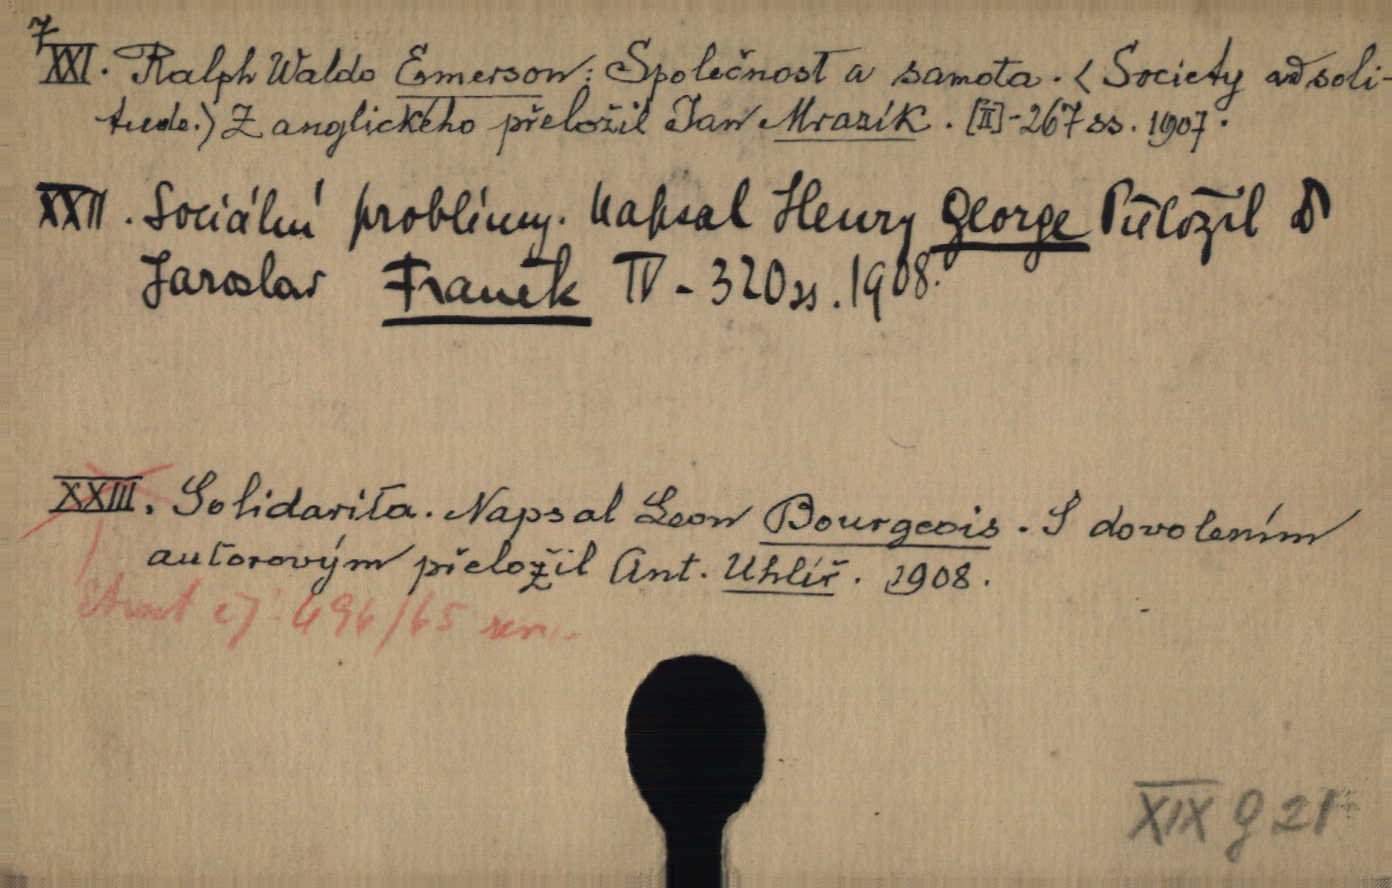 7
XXI. Ralph Waldo Emerson: Společnost a samota. (Society and soli-
tude.) Z anglického přeložil Jan Mrazík. [II]-267 ss. 1907.
XXII. Sociální problémy. Napsal Henry George Přeložil D
Jaroslav Franěk IV - 320 ss. 1908.
XXIII. Solidarita. Napsal Leon Bourgeois. S dovolením
autorovým přeložil Ant. Uhlíř. 1908.
496/65
XIX g 21